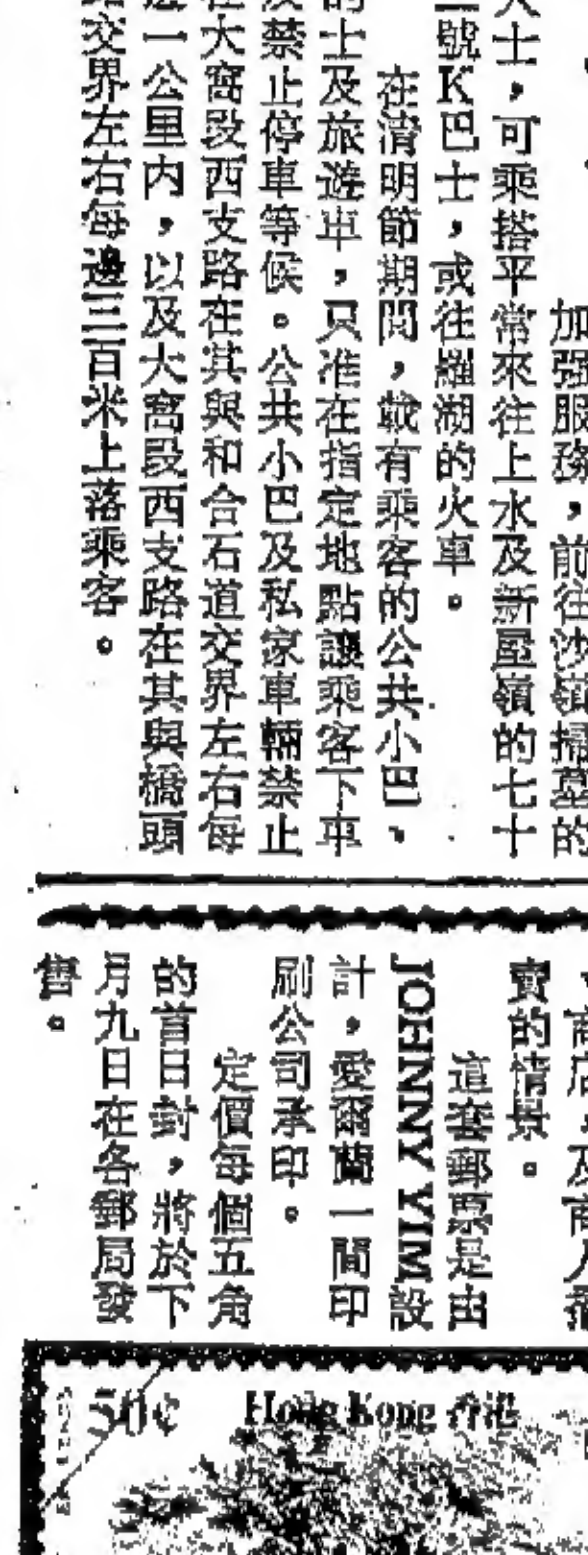 加強服務，前往沙嶺掃墓的
人士，可乘搭平常來往上水及新屋嶺的七十
號K巴士，或往羅湖的火車。
在清明節期間，載有乘客的公共小巴、
的士及旅遊車，只准在指定地點讓乘客下車
禁止停車等候。公共小巴及私家車輛禁止
在大窩段西支路在其與和合石道交界左右每
邊一公里內，以及大窩段西支路在其與橋頭
路交界左右每邊三百米上落乘客。
商店、及商人
賣的情景。
這套郵票是由
JOHNNY YIM設
計，愛爾蘭一間印
刷公司承印。
定價每個五角
的首日封，將於下
月九日在各郵局發
售。
50¢ Hong Kong 香港